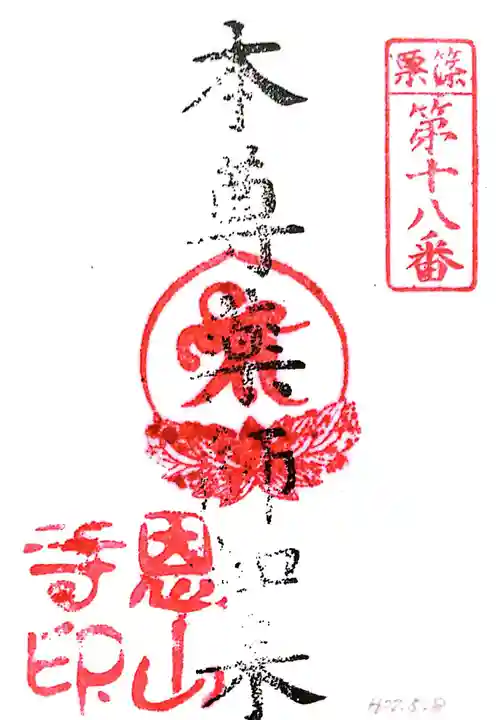 篠栗
第十八番
本尊薬師如来
恩山
寺印
H22.5.8